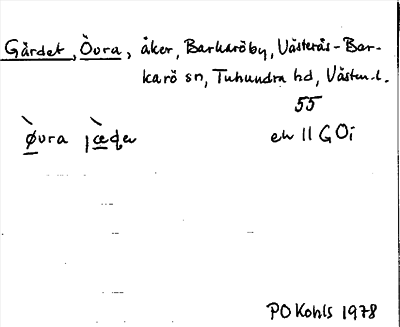 Gårdet, Övra, åker, Barkaröby, Västerås-Bar-
karö sn, Tuhundra hd, Västm.l.
55
ek 11 G0i
øvra
PO Kohls 1978